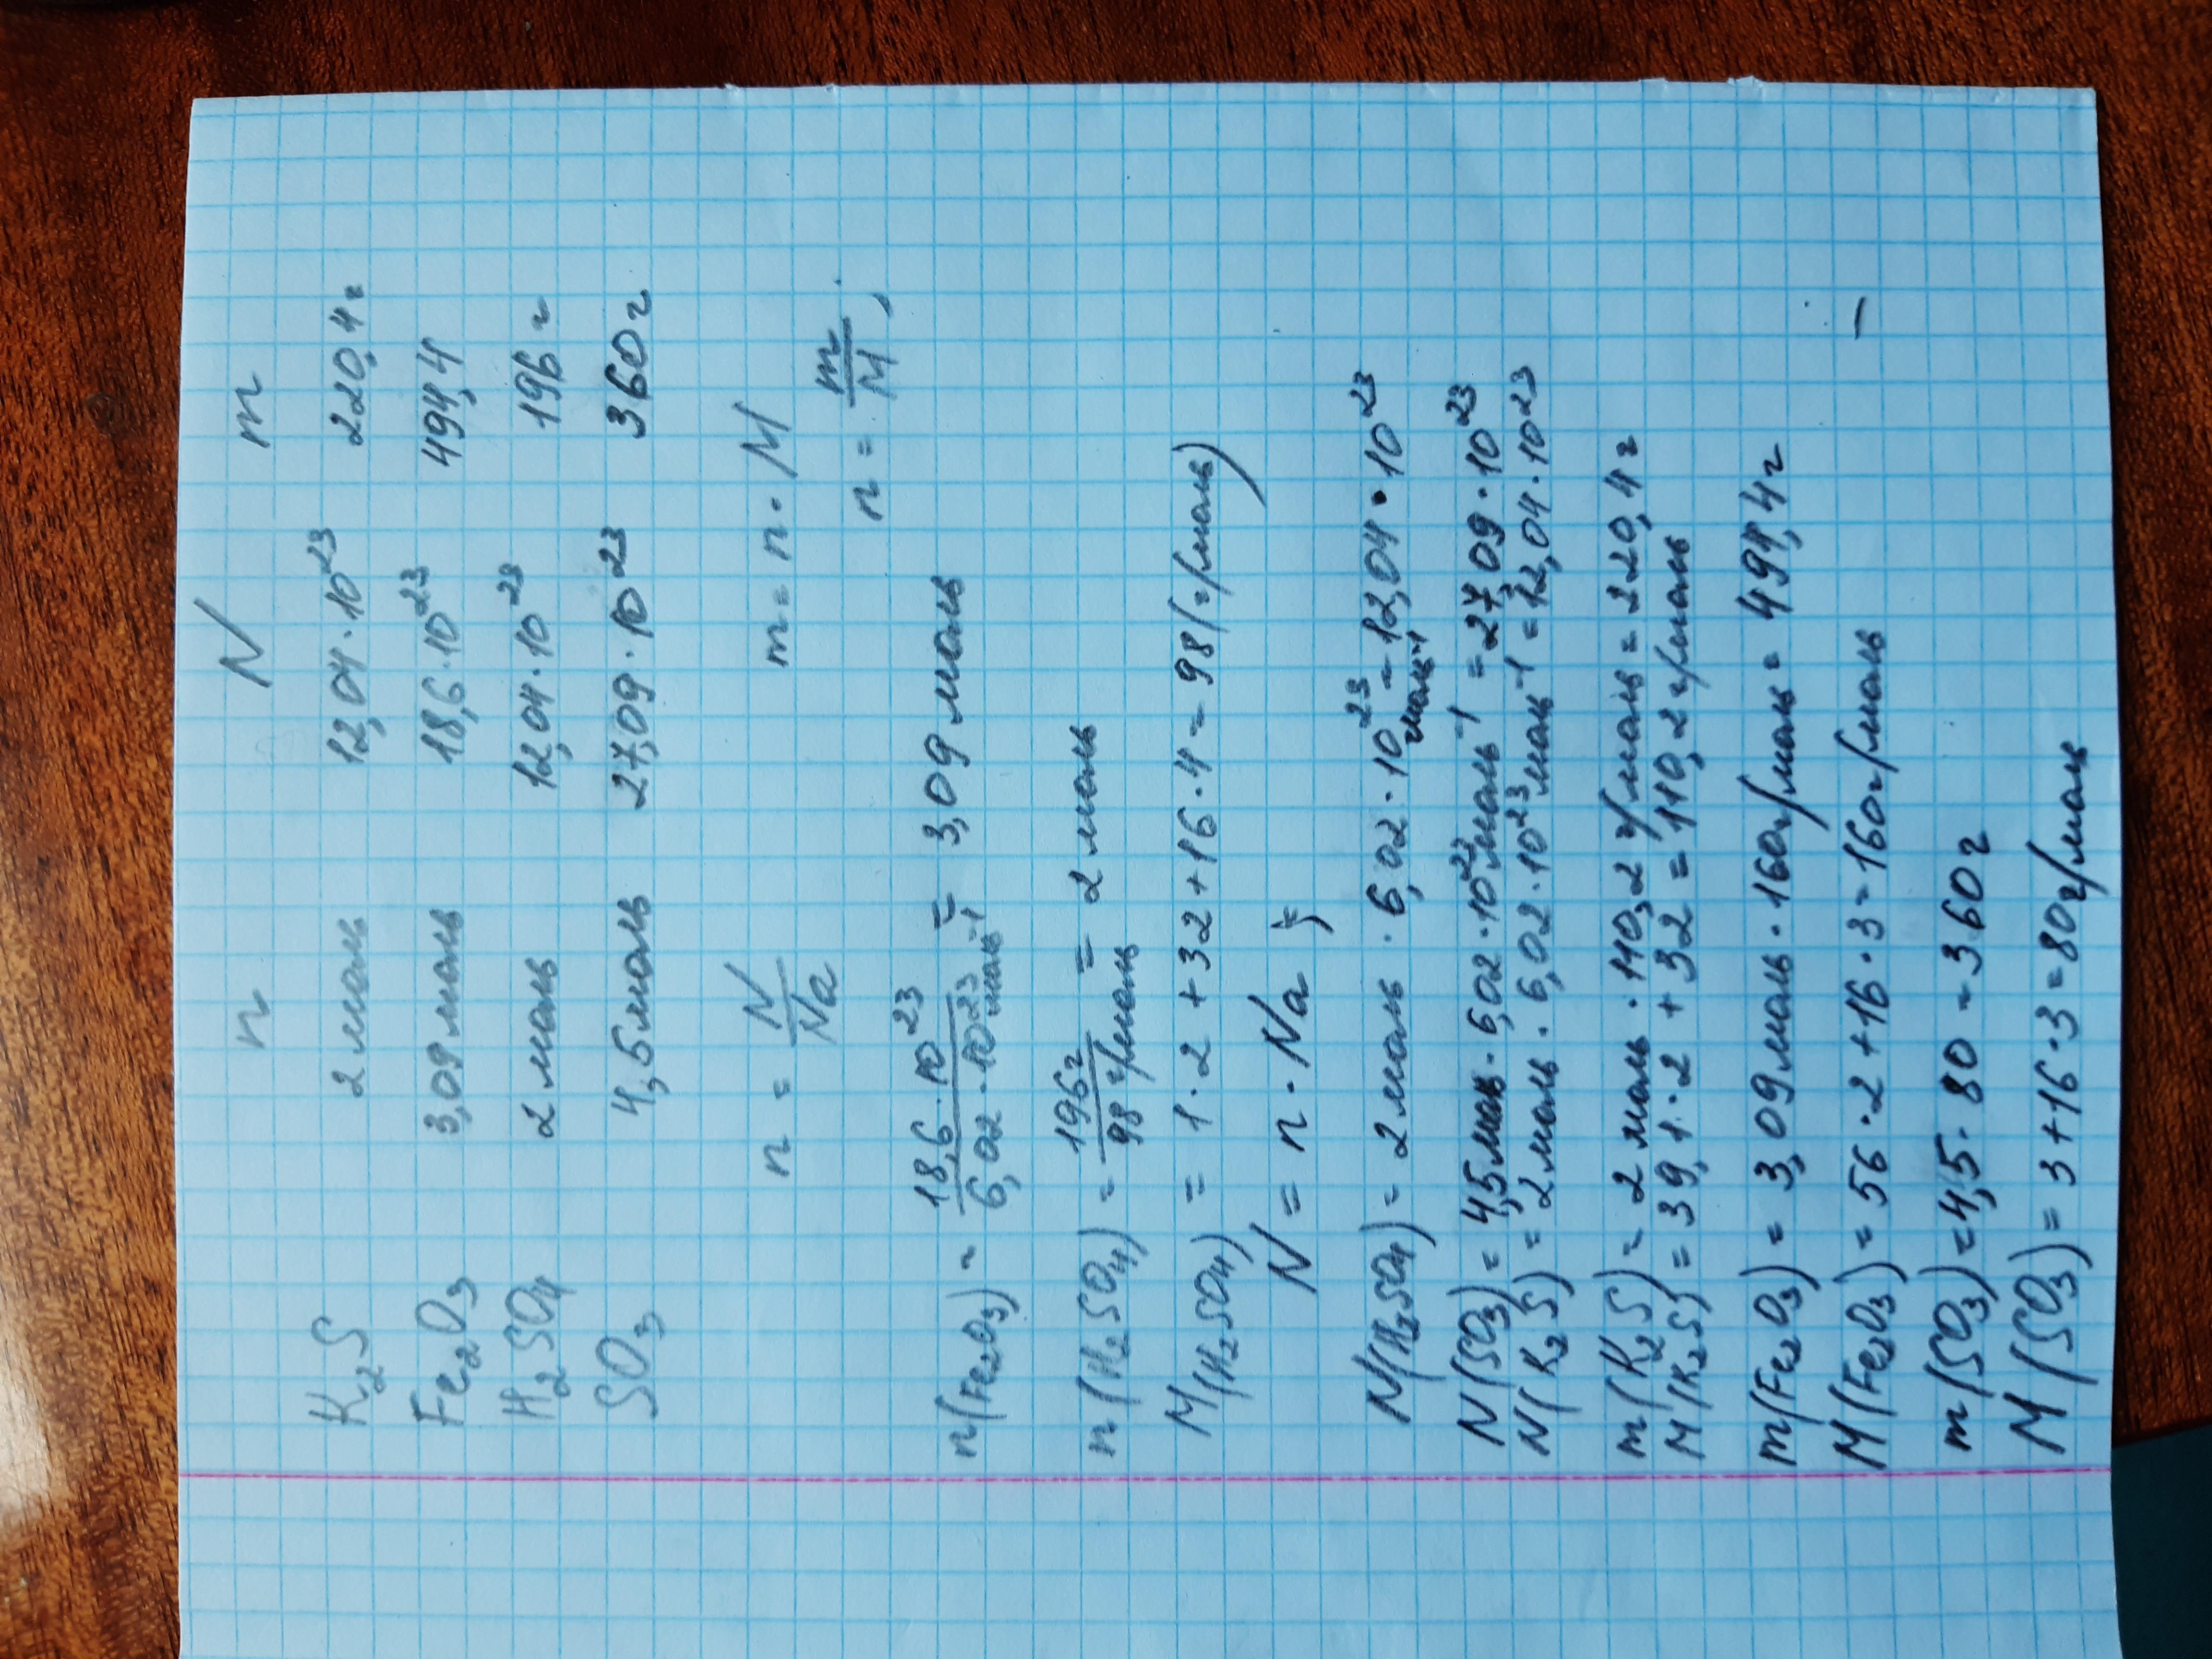 n N m
K₂S 2 моль 12,04·10²³ 220,4г
Fe₂O₃ 3,09 моль 18,6·10²³ 494,4
H₂SO₄ 2 моль 12,04·10²³ 196 г
SO₃ 4,5 моль 27,09·10²³ 360 г
n = N/Na m = n·M
n = m/M,
n(Fe₂O₃) = 18,6·10²³/6,02·10²³ моль⁻¹ = 3,09 моль
n(H₂SO₄) = 196 г/98 г/моль = 2 моль
M(H₂SO₄) = 1·2+32+16·4=98(г/моль)
N = n·Na ;
N(H₂SO₄) = 2 моль · 6,02·10²³ моль⁻¹ = 12,04·10²³
N(SO₃) = 4,5 моль·6,02·10²³ моль⁻¹ = 27,09·10²³
N(K₂S) = 2 моль·6,02·10²³ моль⁻¹ = 12,04·10²³
m(K₂S) = 2 моль·110,2 г/моль = 220,4 г
M(K₂S) = 39,1·2+32=110,2 г/моль
m(Fe₂O₃) = 3,09 моль·160г/моль = 494,4г
M(Fe₂O₃) = 56·2+16·3=160г/моль
m(SO₃)=4,5·80=360 г
M(SO₃) = 3+16·3=80г/моль